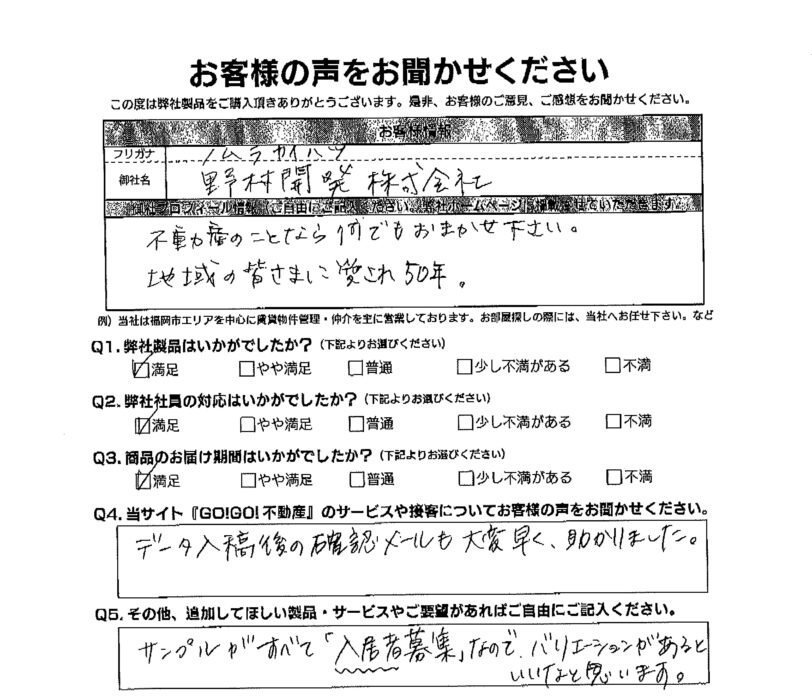 お客様の声をお聞かせください
この度は弊社製品をご購入頂きありがとうございます。是非、お客様のご意見、ご感想をお聞かせください。
お客様情報
フリガナ ノムラカイハツ
御社名 野村開発株式会社
御社プロフィール情報(ご自由にご記入ください。弊社ホームページに掲載させていただきます)
不動産のことなら何でもおまかせ下さい。
地域の皆さまに愛され50年。
例）当社は福岡市エリアを中心に賃貸物件管理・仲介を主に営業しております。お部屋探しの際には、当社へお任せ下さい。など
Q1.弊社製品はいかがでしたか？（下記よりお選びください）
☑満足 □やや満足 □普通 □少し不満がある □不満
Q2.弊社社員の対応はいかがでしたか？（下記よりお選びください）
☑満足 □やや満足 □普通 □少し不満がある □不満
Q3.商品のお届け期間はいかがでしたか？（下記よりお選びください）
☑満足 □やや満足 □普通 □少し不満がある □不満
Q4.当サイト『GO!GO!不動産』のサービスや接客についてお客様の声をお聞かせください。
データ入稿後の確認メールも大変早く、助かりました。
Q5.その他、追加してほしい製品・サービスやご要望があればご自由にご記入ください。
サンプルがすべて「入居者募集」なので、バリエーションがあると
いいなと思います。